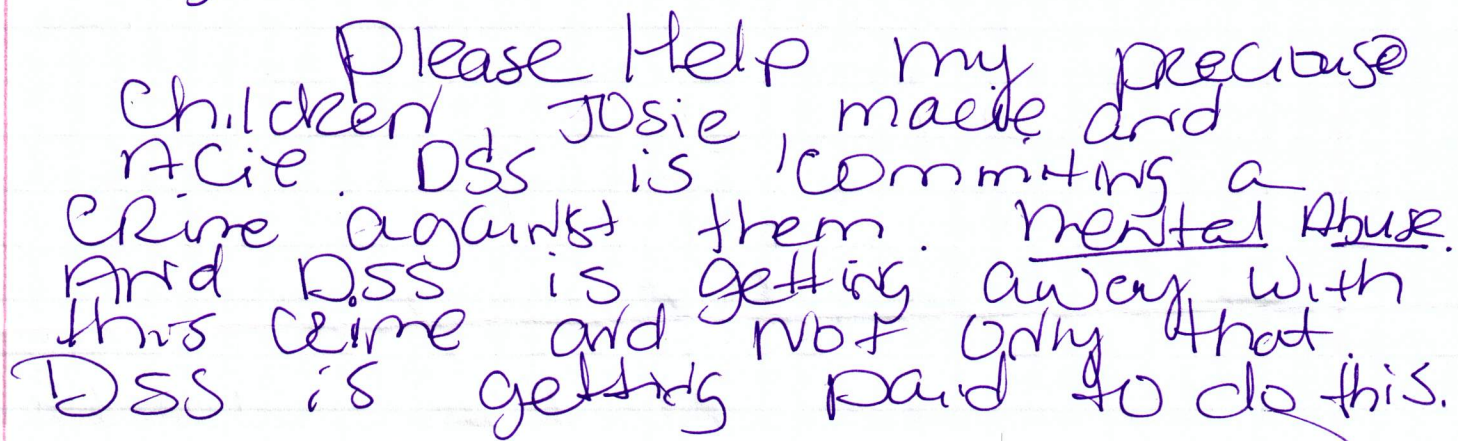 Please Help my preciouse
Children, Josie, macie and
Acie. DSS is commiting a
CRime against them. mental Abuse.
And DSS is getting away with
this CRime and Not only that.
DSS is getting paid to do this.